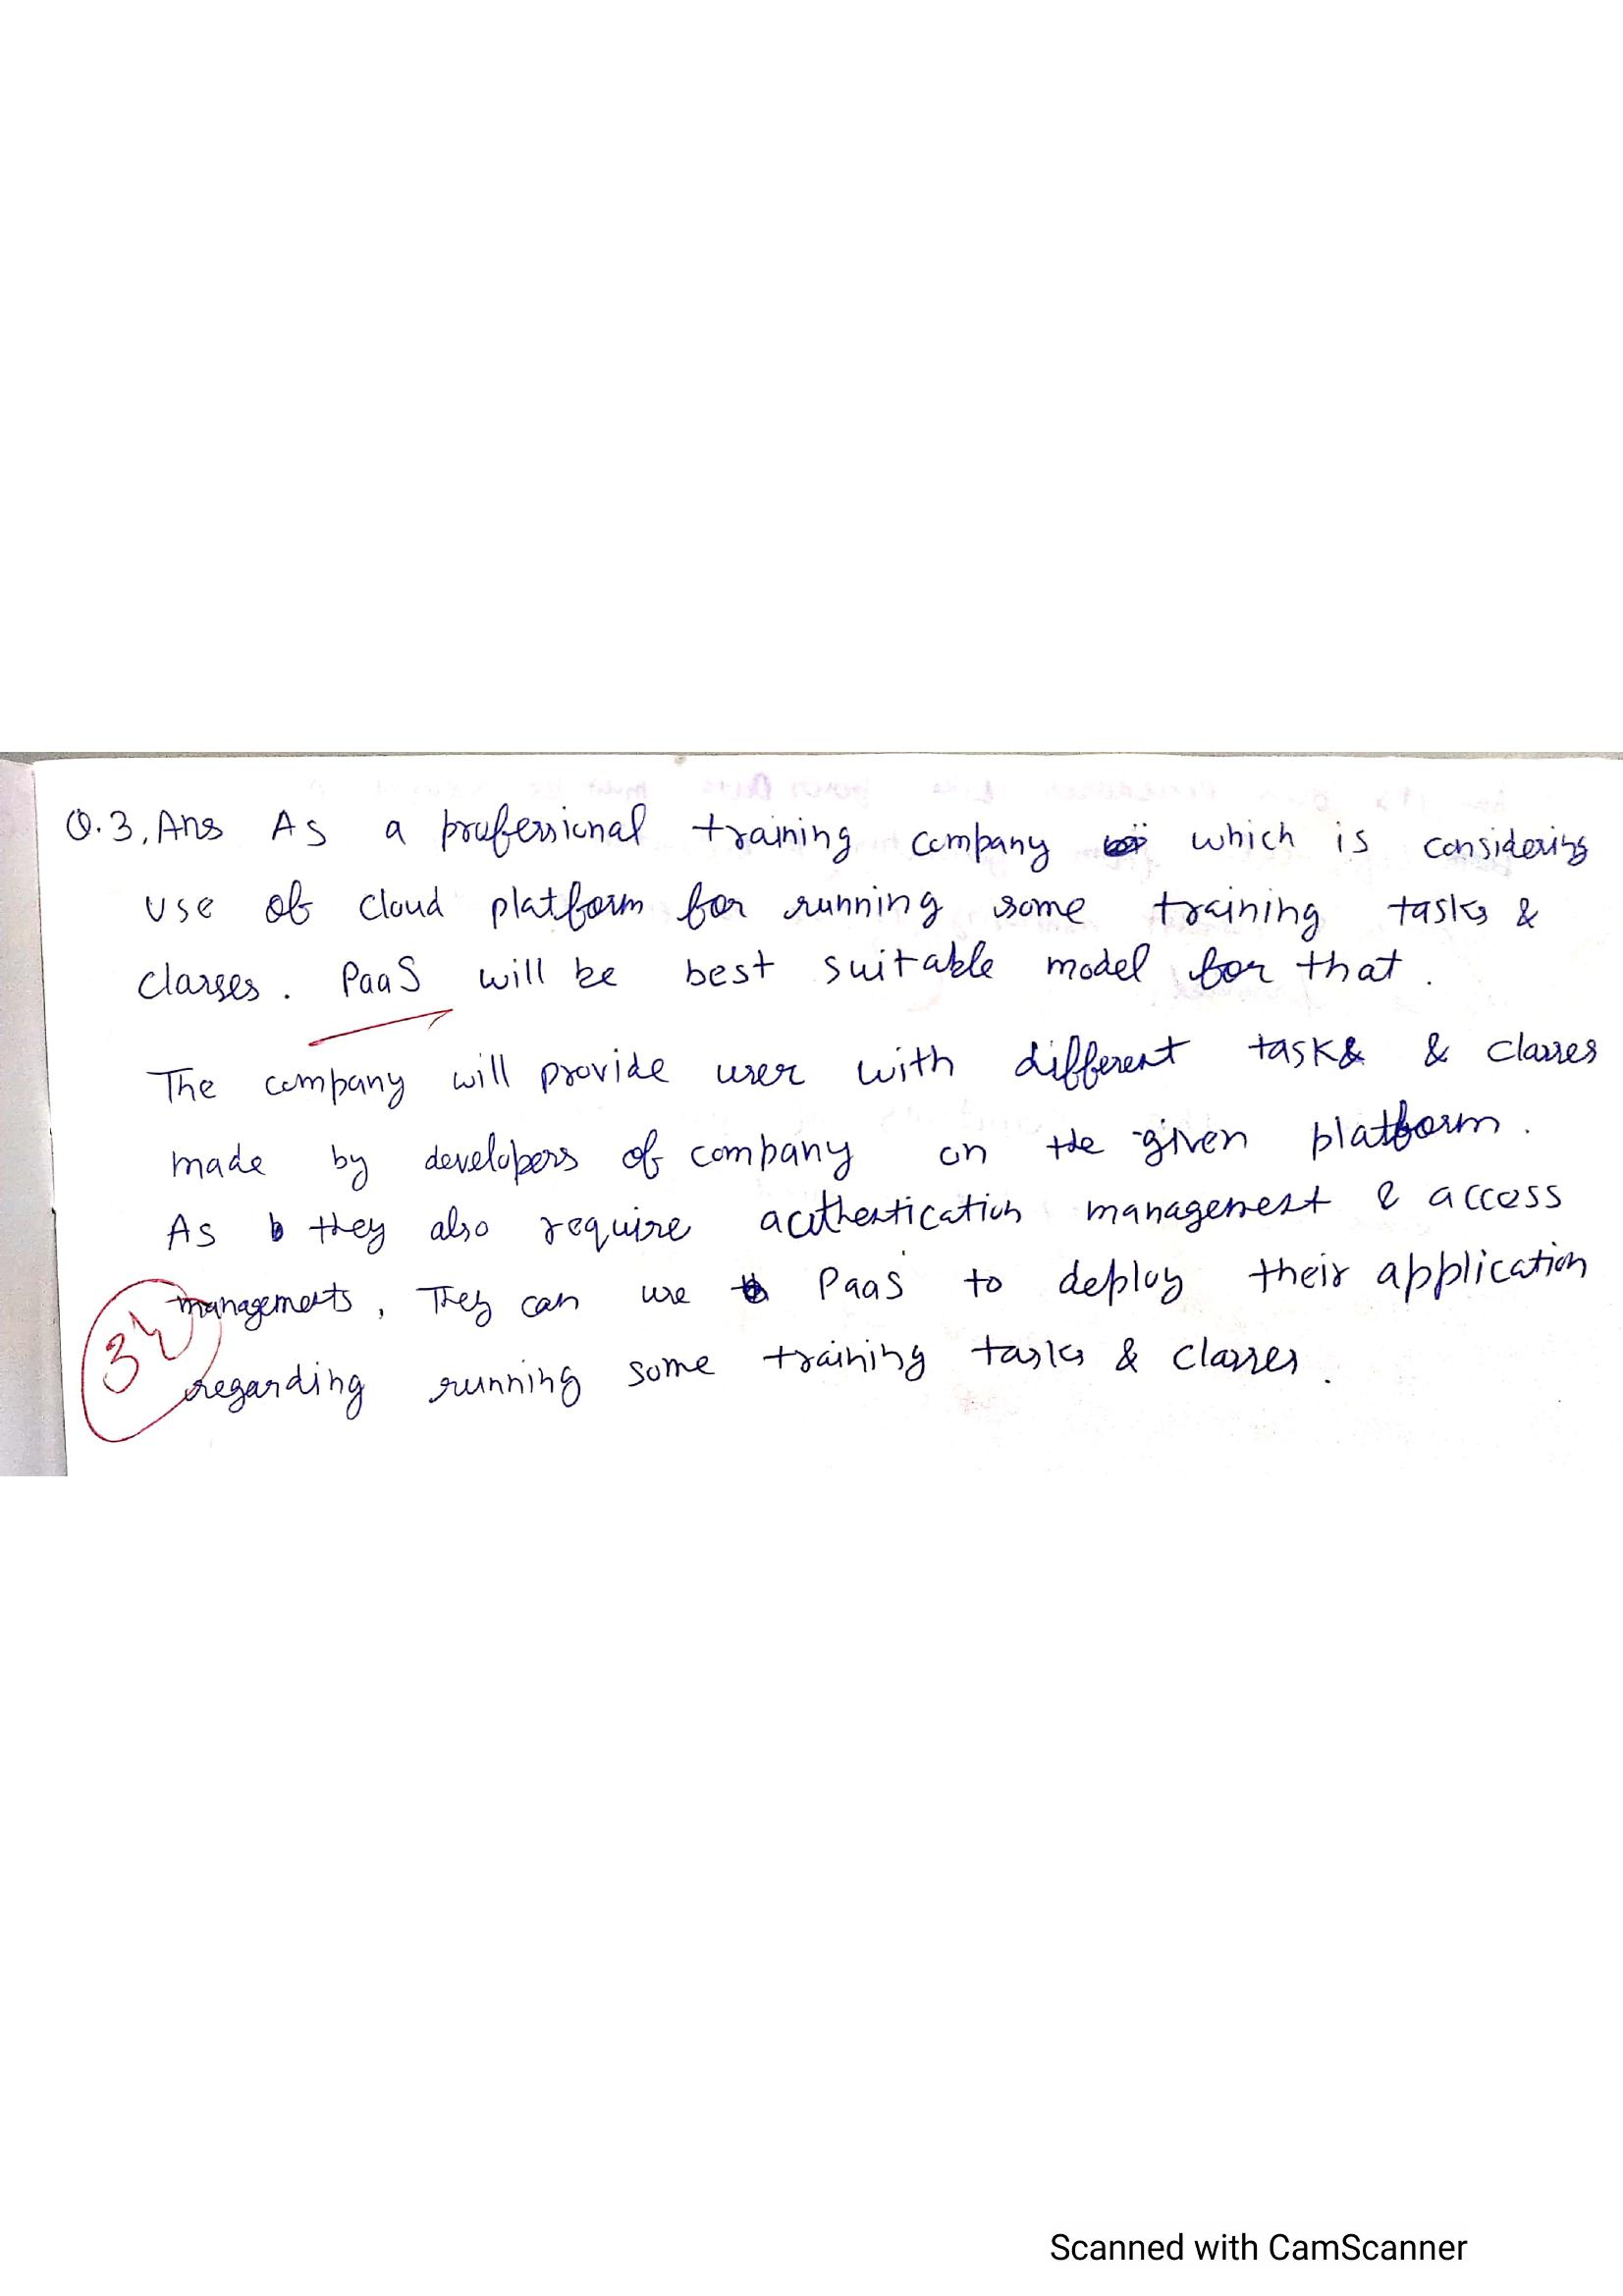 Q.3. Ans As a professional training company which is considering
use of cloud platform for running some training tasks &
classes. PaaS will be best suitable model for that.
The company will provide user with different task& & classes
made by developers of company on the given platform.
As they also require authentication management & access
managements, They can use PaaS to deploy their application
regarding running some training tasks & classes.
Scanned with CamScanner